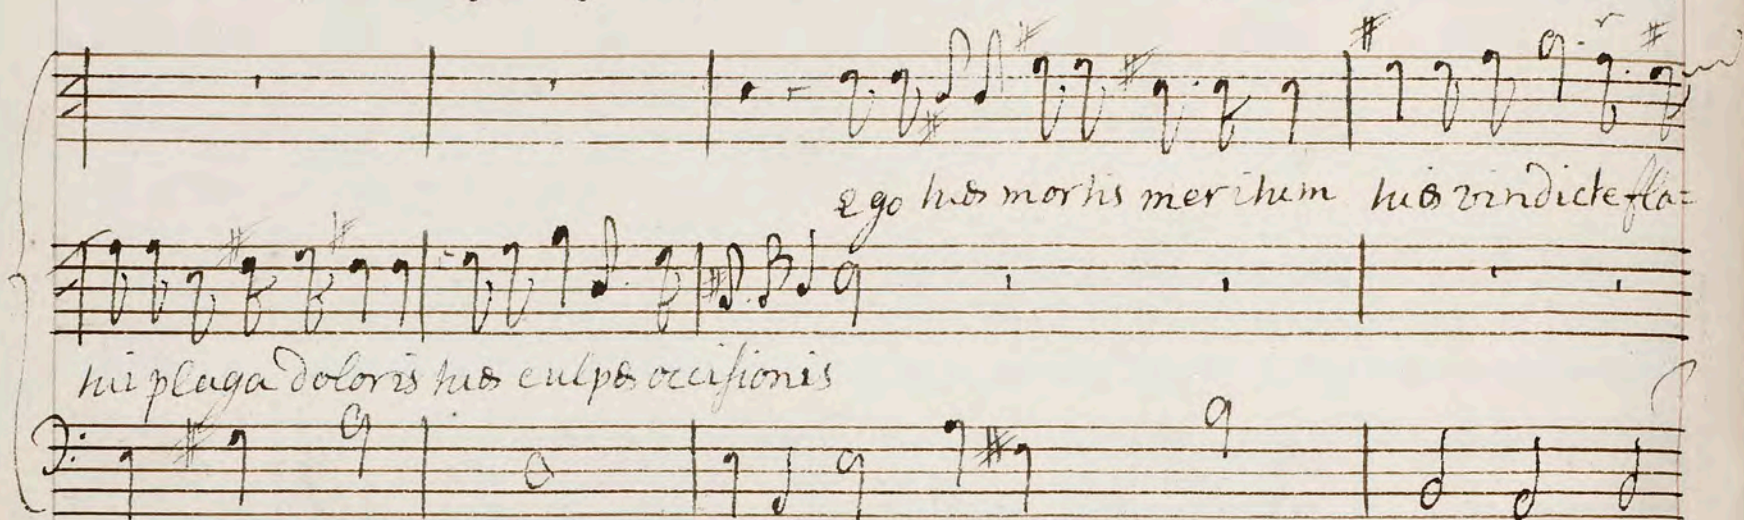 Ego tuæ mortis meritum tuæ vindicte fla=
tui plaga doloris tuæ culpæ occisionis